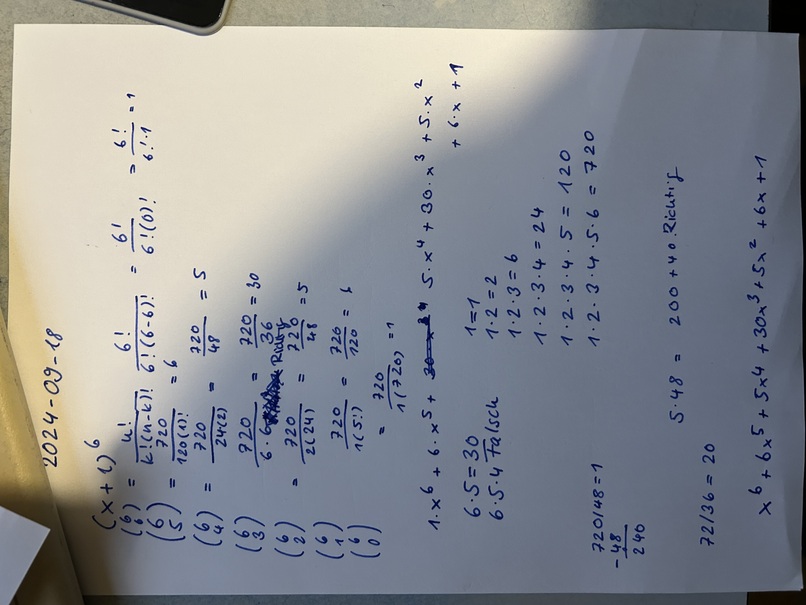 2024-09-18
(x+1)^6
(6 6) = n!/k!(n-k)! 6!/6!(6-6)! = 6!/6!(0)! = 6!/6!·1 = 1
(6 5) = 720/120(1)! = 6
(6 4) = 720/24(2) = 720/48 = 5
(6 3) 720/6·6 = 720/36 = 30
Richtig
(6 2) = 720/2(24) = 720/48 = 5
(6 1) 720/1(5!) = 720/120 = 6
(6 0) = 720/1(720) = 1
1·x^6 + 6·x^5 + 5·x^4 + 30·x^3 + 5·x^2
+ 6·x + 1
6·5=30
6·5·4 Falsch
1=1
1·2=2
1·2·3=6
1·2·3·4=24
1·2·3·4·5=120
1·2·3·4·5·6=720
720/48=1
-48
240
5·48 = 200+40 Richtig
72/36 = 20
x^6+6x^5+5x^4+30x^3+5x^2+6x+1